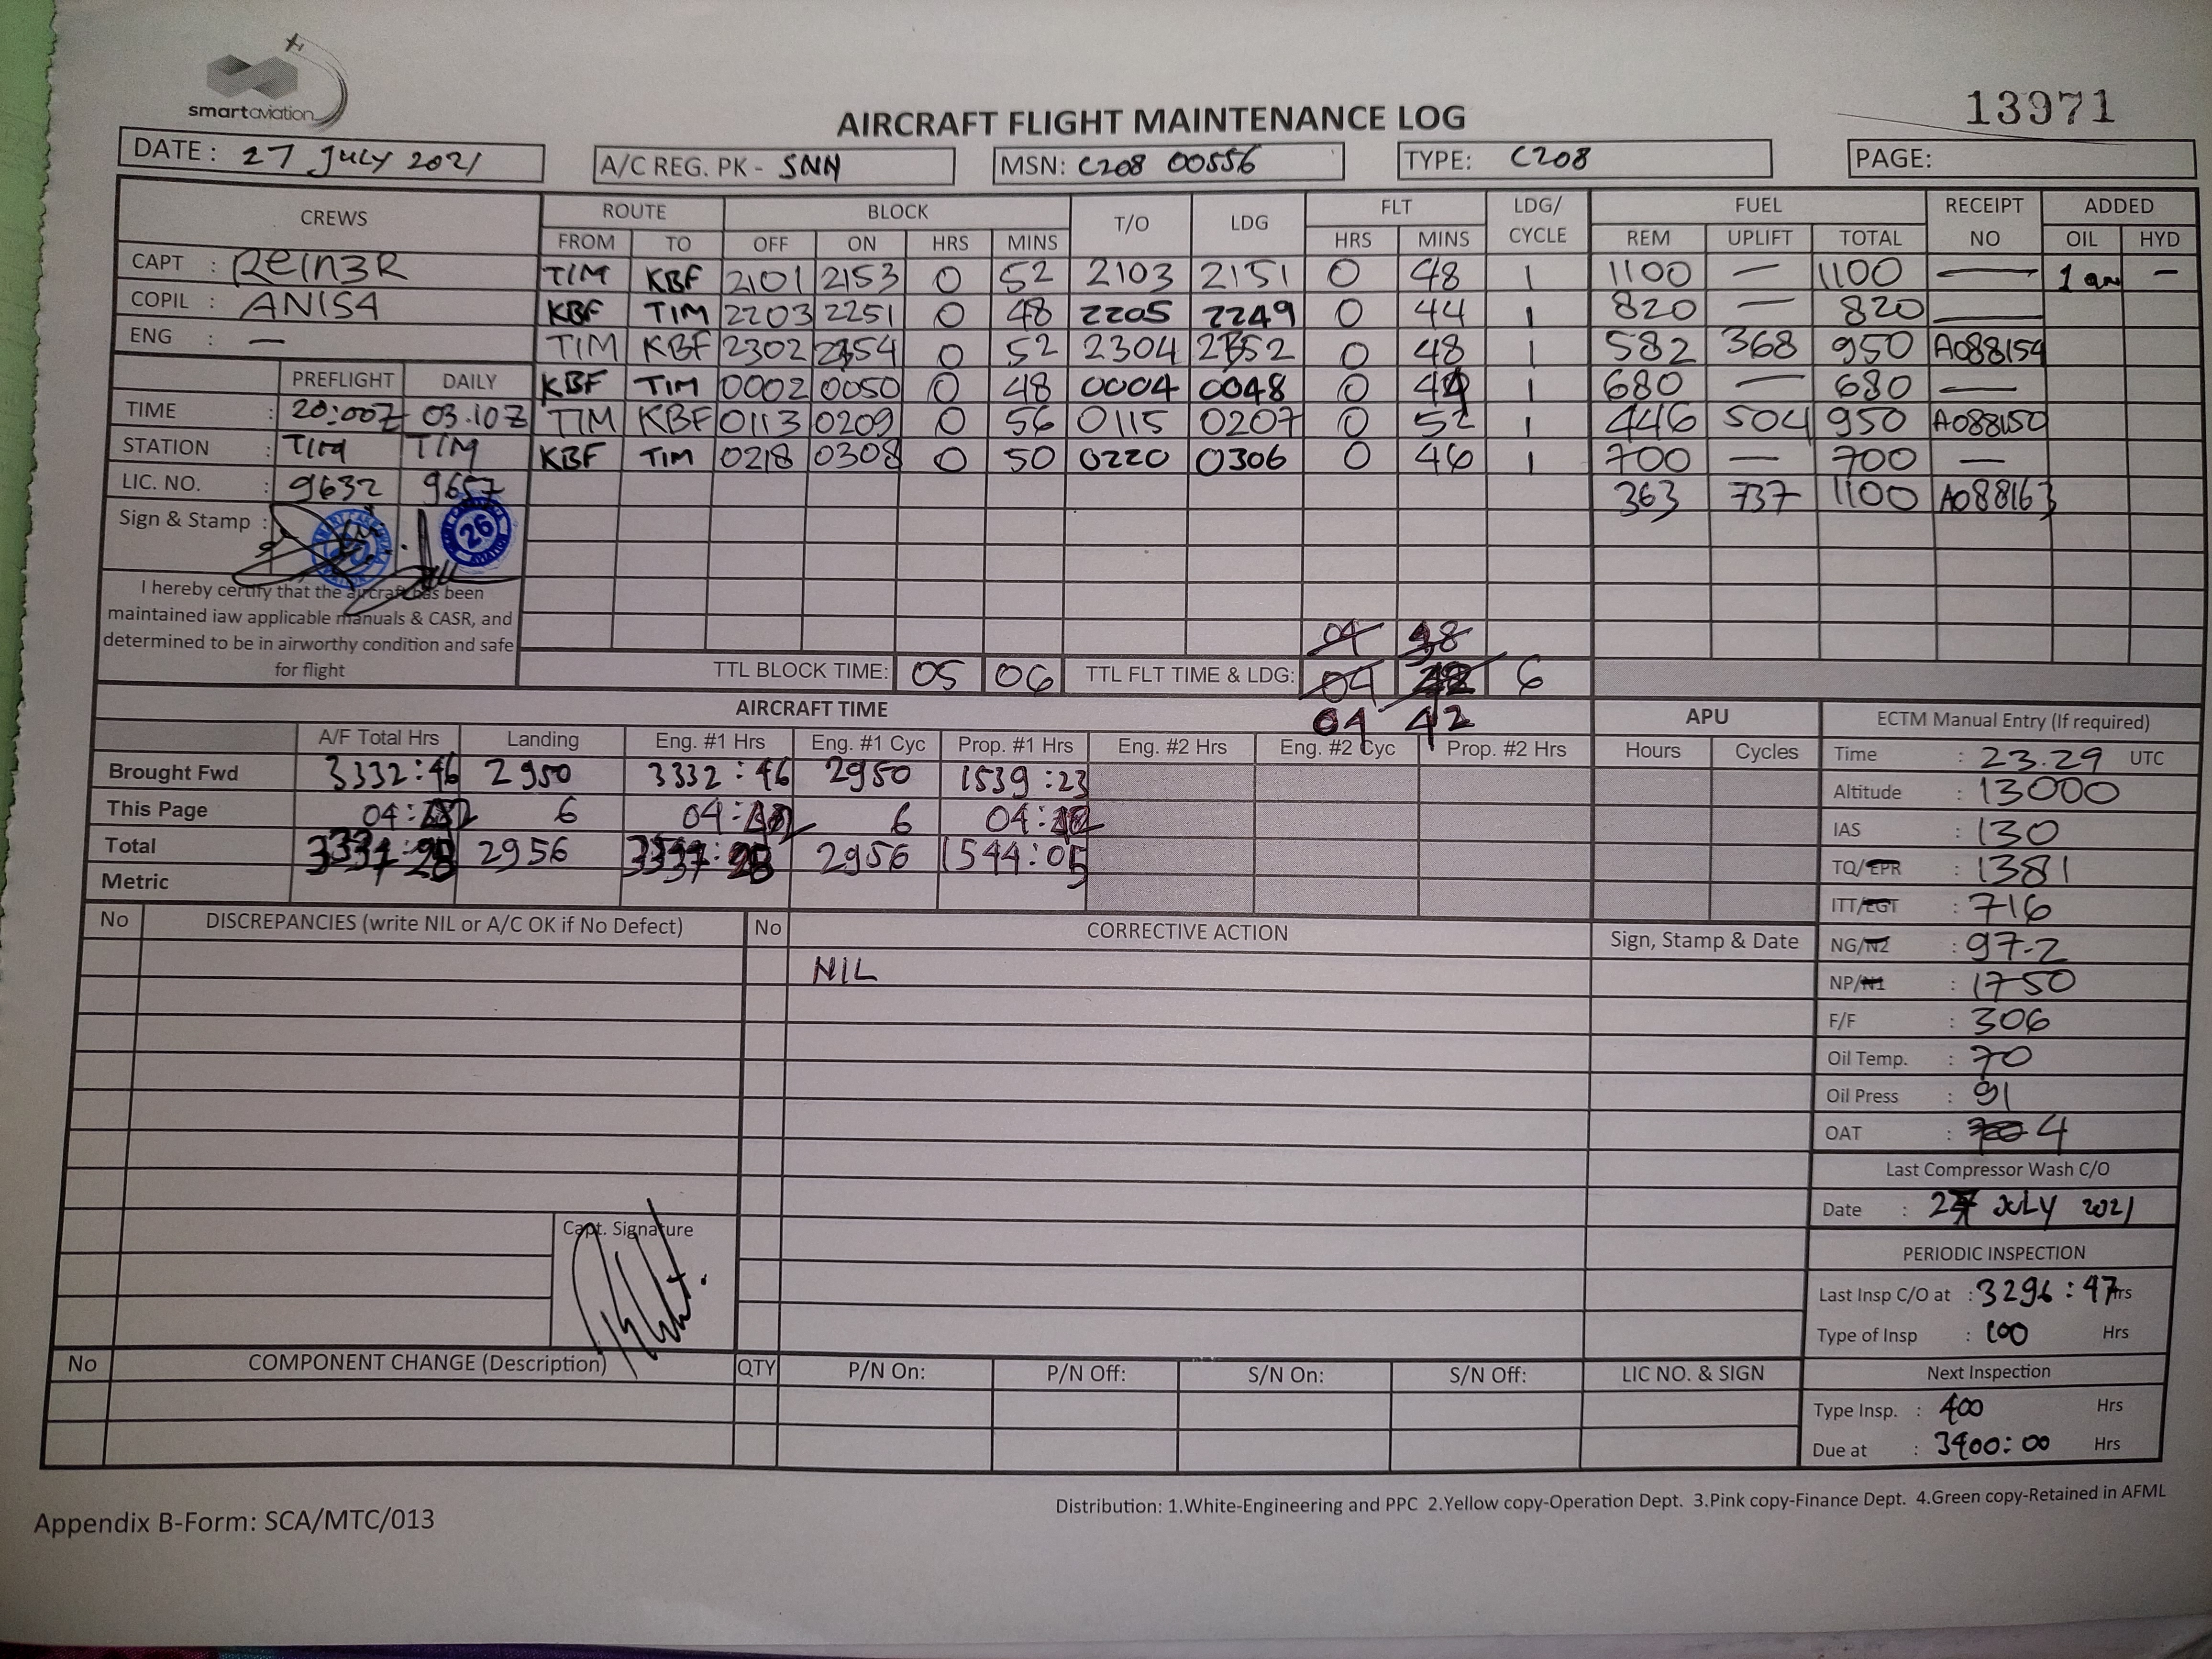 smartaviation
13971
AIRCRAFT FLIGHT MAINTENANCE LOG
DATE : 27 JULY 2021 A/C REG. PK - SNN MSN: C208 00556 TYPE: C208 PAGE:
CREWS ROUTE BLOCK T/O LDG FLT LDG/ CYCLE FUEL RECEIPT NO ADDED
FROM TO OFF ON HRS MINS HRS MINS REM UPLIFT TOTAL OIL HYD
CAPT : REIN3R TIM KBF 2101 2153 0 52 2103 2151 0 48 1 1100 — 1100 — 1 —
COPIL : ANISA KBF TIM 2203 2251 0 48 2205 2249 0 44 1 820 — 820 —
ENG : — TIM KBF 2302 2354 0 52 2304 2352 0 48 1 582 368 950 A088154
PREFLIGHT DAILY KBF TIM 0002 0050 0 48 0004 0048 0 44 1 680 — 680 —
TIME : 20:00Z 03.10Z TIM KBF 0113 0209 0 56 0115 0207 0 52 1 446 504 950 A088150
STATION : TIM TIM KBF TIM 0218 0308 0 50 0220 0306 0 46 1 700 — 700 —
LIC. NO. : 9632 9657 363 737 1100 A088163
Sign & Stamp : 26
I hereby certify that the aircraft has been
maintained iaw applicable manuals & CASR, and
determined to be in airworthy condition and safe
for flight
04 38
TTL BLOCK TIME: 05 06 TTL FLT TIME & LDG: 04 6
04 42
AIRCRAFT TIME APU ECTM Manual Entry (If required)
A/F Total Hrs Landing Eng. #1 Hrs Eng. #1 Cyc Prop. #1 Hrs Eng. #2 Hrs Eng. #2 Cyc Prop. #2 Hrs Hours Cycles
Brought Fwd 3332:46 2950 3332:46 2950 1539:23
This Page 04: 6 04: 6 04:
Total 3337:28 2956 3337:28 2956 1544:05
Metric
Time : 23.29 UTC
Altitude : 13000
IAS : 130
TQ/EPR : 1381
ITT/EGT : 716
NG/N2 : 97.2
NP/N1 : 1750
F/F : 306
Oil Temp. : 70
Oil Press : 91
OAT : 4
Last Compressor Wash C/O
Date : 27 JULY 2021
PERIODIC INSPECTION
Last Insp C/O at : 3296:47 Hrs
Type of Insp : 100 Hrs
Next Inspection
Type Insp. : 400 Hrs
Due at : 3400:00 Hrs
No DISCREPANCIES (write NIL or A/C OK if No Defect) No CORRECTIVE ACTION Sign, Stamp & Date
NIL
Capt. Signature
No COMPONENT CHANGE (Description) QTY P/N On: P/N Off: S/N On: S/N Off: LIC NO. & SIGN
Distribution: 1.White-Engineering and PPC 2.Yellow copy-Operation Dept. 3.Pink copy-Finance Dept. 4.Green copy-Retained in AFML
Appendix B-Form: SCA/MTC/013